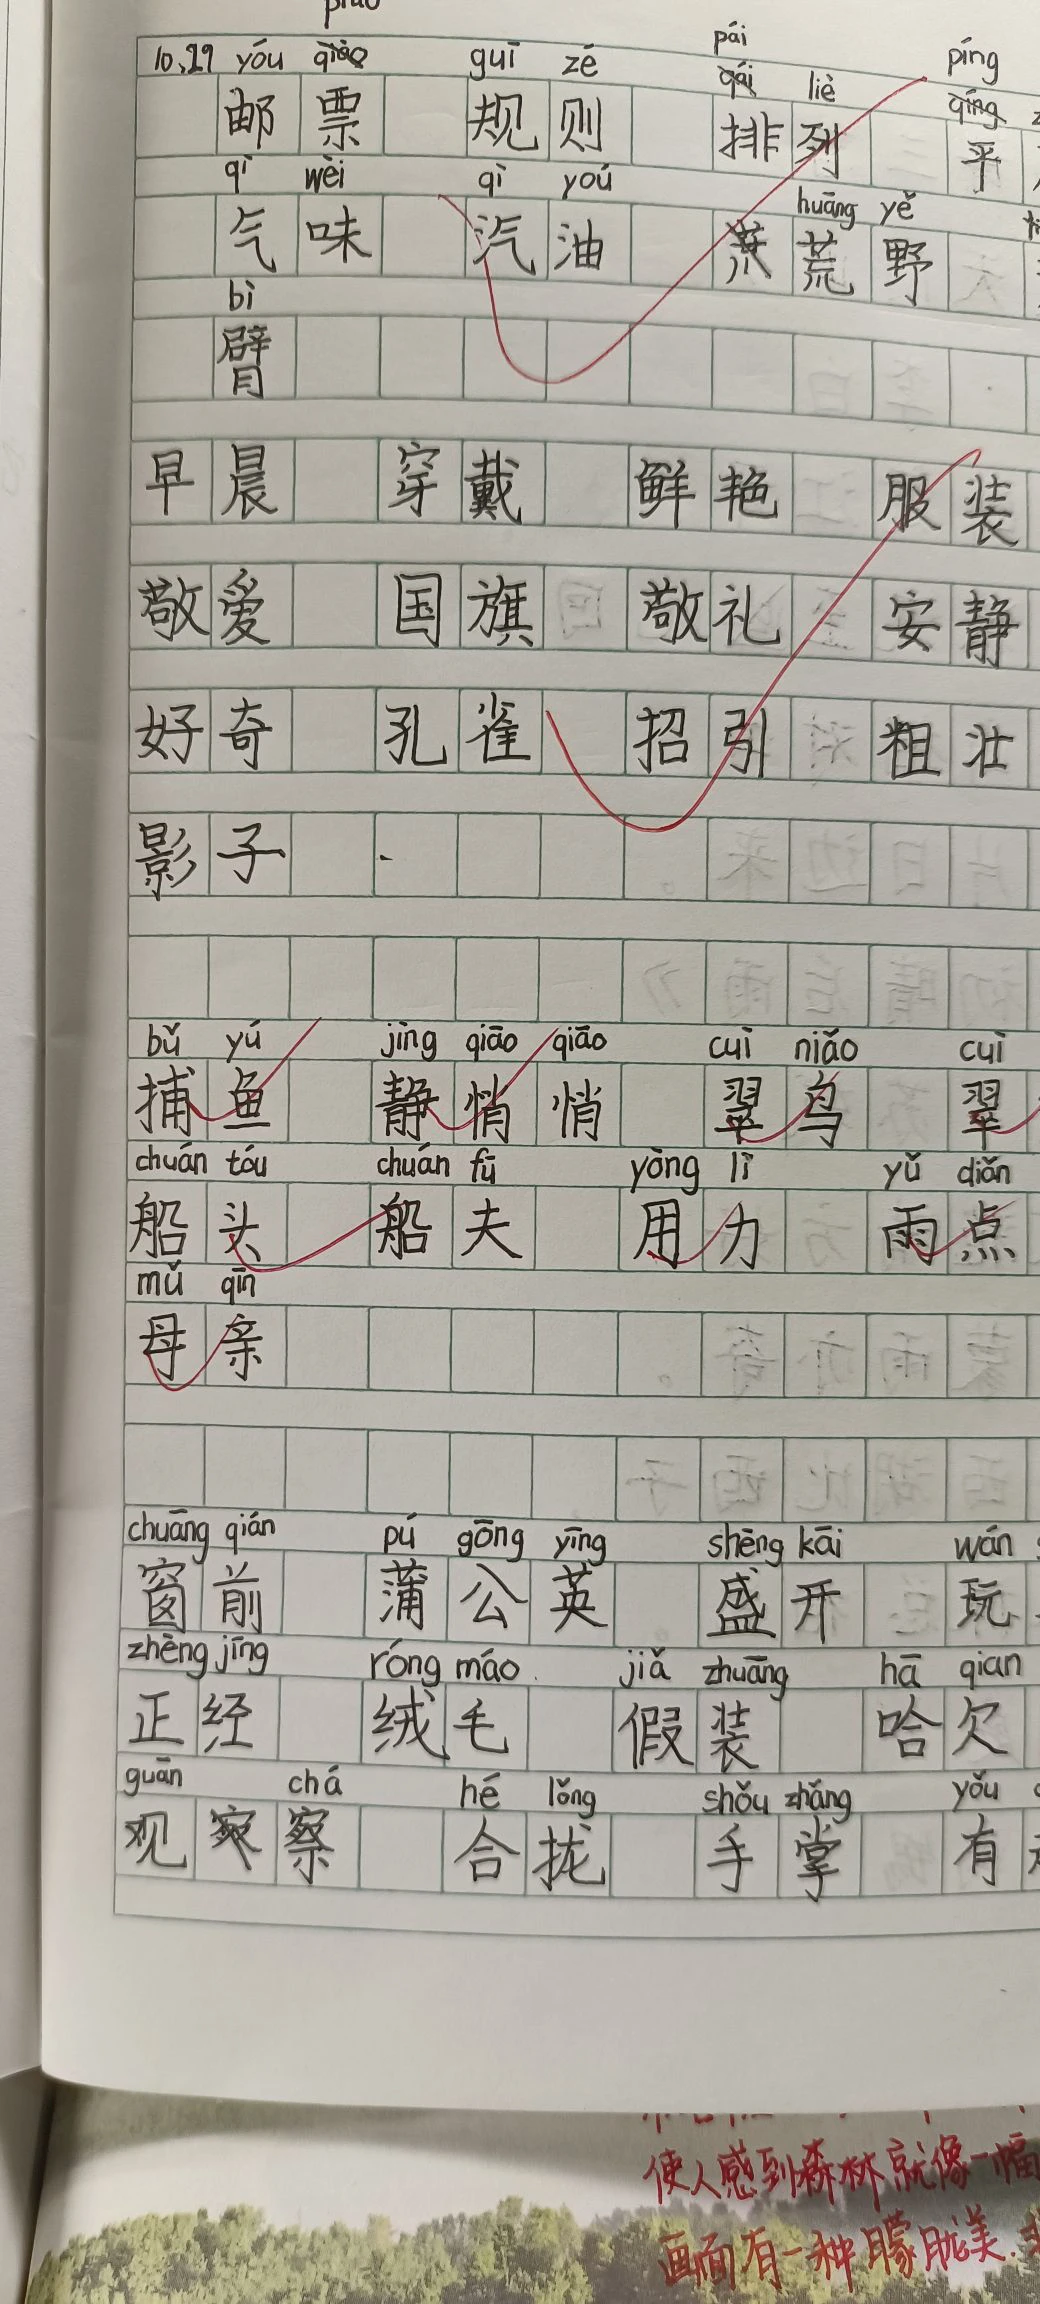 piào
10.29 yóu guī zé pái liè píng
邮票 规则 排列 平
qì wèi qì yoú huāng yě
气味 汽油 荒野
bì
臂
早晨 穿戴 鲜艳 服装
敬爱 国旗 敬礼 安静
好奇 孔雀 招引 粗壮
影子
bǔ yú jìng qiāo qiāo cuì niǎo cuì
捕鱼 静悄悄 翠鸟 翠
chuán tóu chuán fū yòng lì yǔ diǎn
船头 船夫 用力 雨点
mǔ qīn
母亲
chuāng qián pú gōng yīng shèng kāi wán
窗前 蒲公英 盛开 玩
zhèng jīng róng máo jiǎ zhuāng hā qian
正经 绒毛 假装 哈欠
guān chá hé lǒng shǒu zhǎng yǒu
观察 合拢 手掌 有
使人感到森林就像一幅
画面有一种朦胧美.